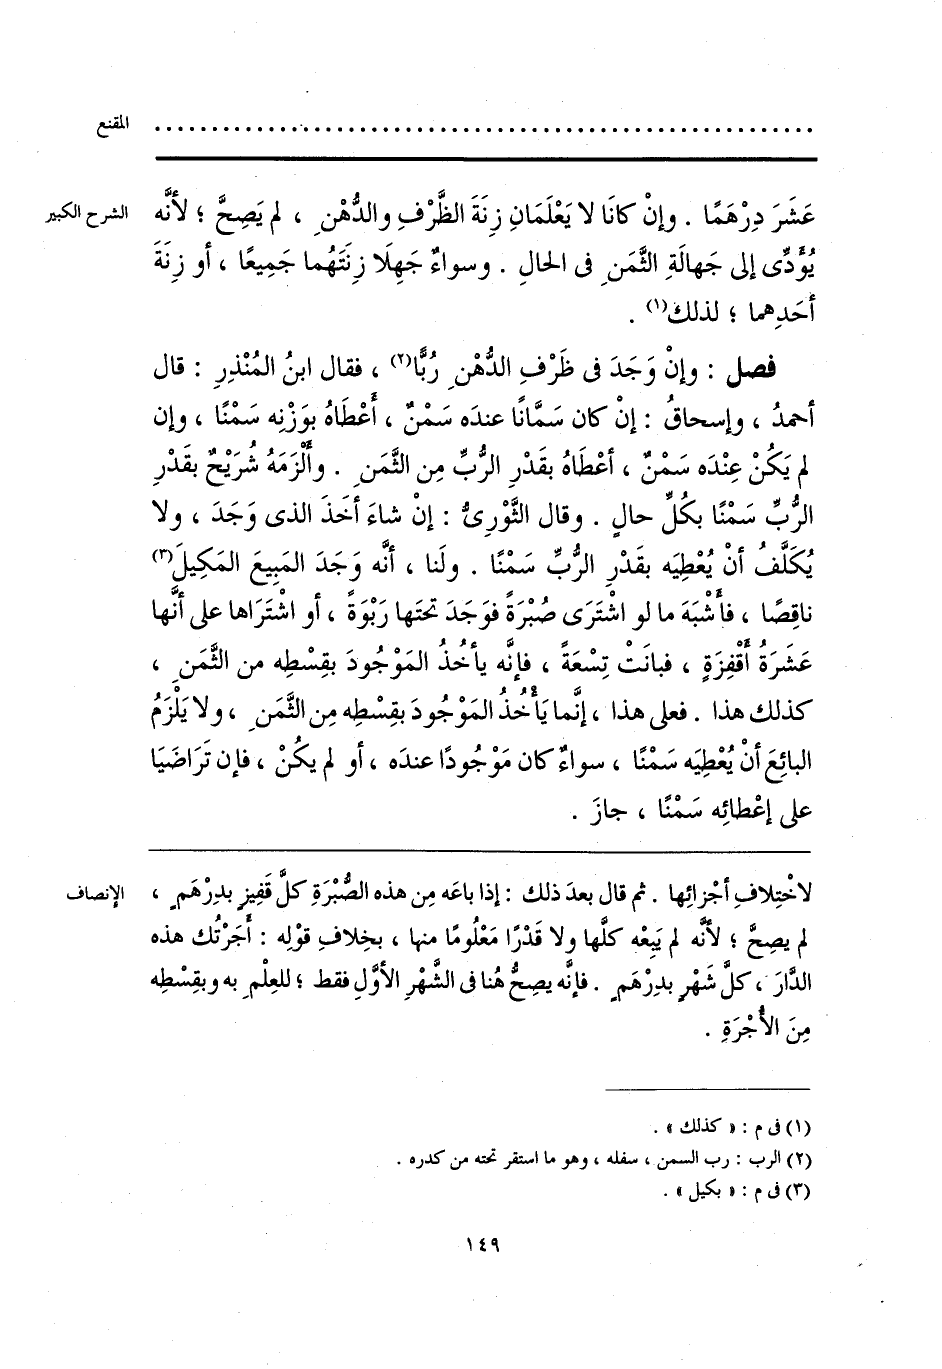 المقنع ................................................
الشرح الكبير عَشَرَ دِرْهَمًا . وإنْ كانَا لا يَعْلَمَانِ زِنَةَ الظَّرْفِ والدُّهْنِ ، لم يَصِحَّ ؛ لأنَّه
يُؤَدِّى إلى جَهالَةِ الثَّمَنِ فى الحالِ . وسواءٌ جَهِلَا زِنَتَهُما جَمِيعًا ، أو زِنَةَ
أحَدِهما ؛ لذلك(١) .
فصل : وإنْ وَجَدَ فى ظَرْفِ الدُّهْنِ رُبًّا(٢) ، فقال ابنُ المُنْذِرِ : قال
أحمدُ ، وإسحاقُ : إنْ كان سَمَّانًا عنده سَمْنٌ ، أعْطَاهُ بوَزْنِه سَمْنًا ، وإن
لم يَكُنْ عِنْدَه سَمْنٌ ، أعْطَاهُ بقَدْرِ الرُّبِّ مِن الثَّمَنِ . وألْزَمَهُ شُرَيْحٌ بقَدْرِ
الرُّبِّ سَمْنًا بكُلِّ حالٍ . وقال الثَّوْرِىُّ : إنْ شاءَ أخَذَ الذى وَجَدَ ، ولا
يُكَلَّفُ أنْ يُعْطِيَه بقَدْرِ الرُّبِّ سَمْنًا . ولَنا ، أنَّه وَجَدَ المَبِيعَ المَكِيلَ(٣)
ناقِصًا ، فأَشْبَهَ ما لو اشْتَرَى صُبْرَةً فوَجَدَ تحتَها رَبْوَةً ، أو اشْتَرَاها على أنَّها
عَشَرَةُ أقْفِزَةٍ ، فبانَتْ تِسْعَةً ، فإنَّه يأخُذُ المَوْجُودَ بقِسْطِه من الثَّمَنِ ،
كذلك هذا . فعلى هذا ، إنَّما يَأْخُذُ المَوْجُودَ بقِسْطِه مِن الثَّمَنِ ، ولا يَلْزَمُ
البائِعَ أنْ يُعْطِيَه سَمْنًا ، سواءٌ كان مَوْجُودًا عندَه ، أو لم يكُنْ ، فإن تَرَاضَيَا
على إعْطائِه سَمْنًا ، جازَ .
الإنصاف لاخْتِلافِ أجْزائِها . ثم قال بعدَ ذلك : إذا باعَه مِن هذه الصُّبْرَةِ كلَّ قَفِيزٍ بدِرْهَمٍ ،
لم يصِحَّ ؛ لأنَّه لم يَبِعْه كلَّها ولا قَدْرًا مَعْلُومًا منها ، بخِلافِ قوْلِه : أجَرْتُك هذه
الدَّارَ ، كلَّ شَهْرٍ بدِرْهَمٍ . فإنَّه يصِحُّ هُنا فى الشَّهْرِ الأوَّلِ فقط ؛ للعِلْمِ به وبقِسْطِه
مِنَ الأُجْرَةِ .
(١) فى م : « كذلك » .
(٢) الرب : رب السمن ، سفله ، وهو ما استقر تحته من كدره .
(٣) فى م : « بكيل » .
١٤٩